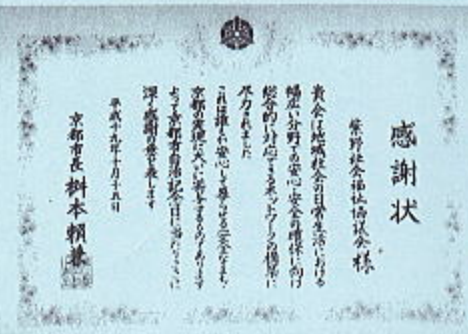 感謝状
紫野社会福祉協議会様
貴会は地域社会の日常生活における
幅広い分野での安心・安全の確保に向け
総合的に対応できるネットワークの構築に
尽力されました
これは誰もが安心して暮らせる安全なまち
京都の実現に大いに寄与するものであります
よって京都市自治記念日に当たりここに
深く感謝の意を表します
平成十九年十月十五日
京都市長 桝本賴兼